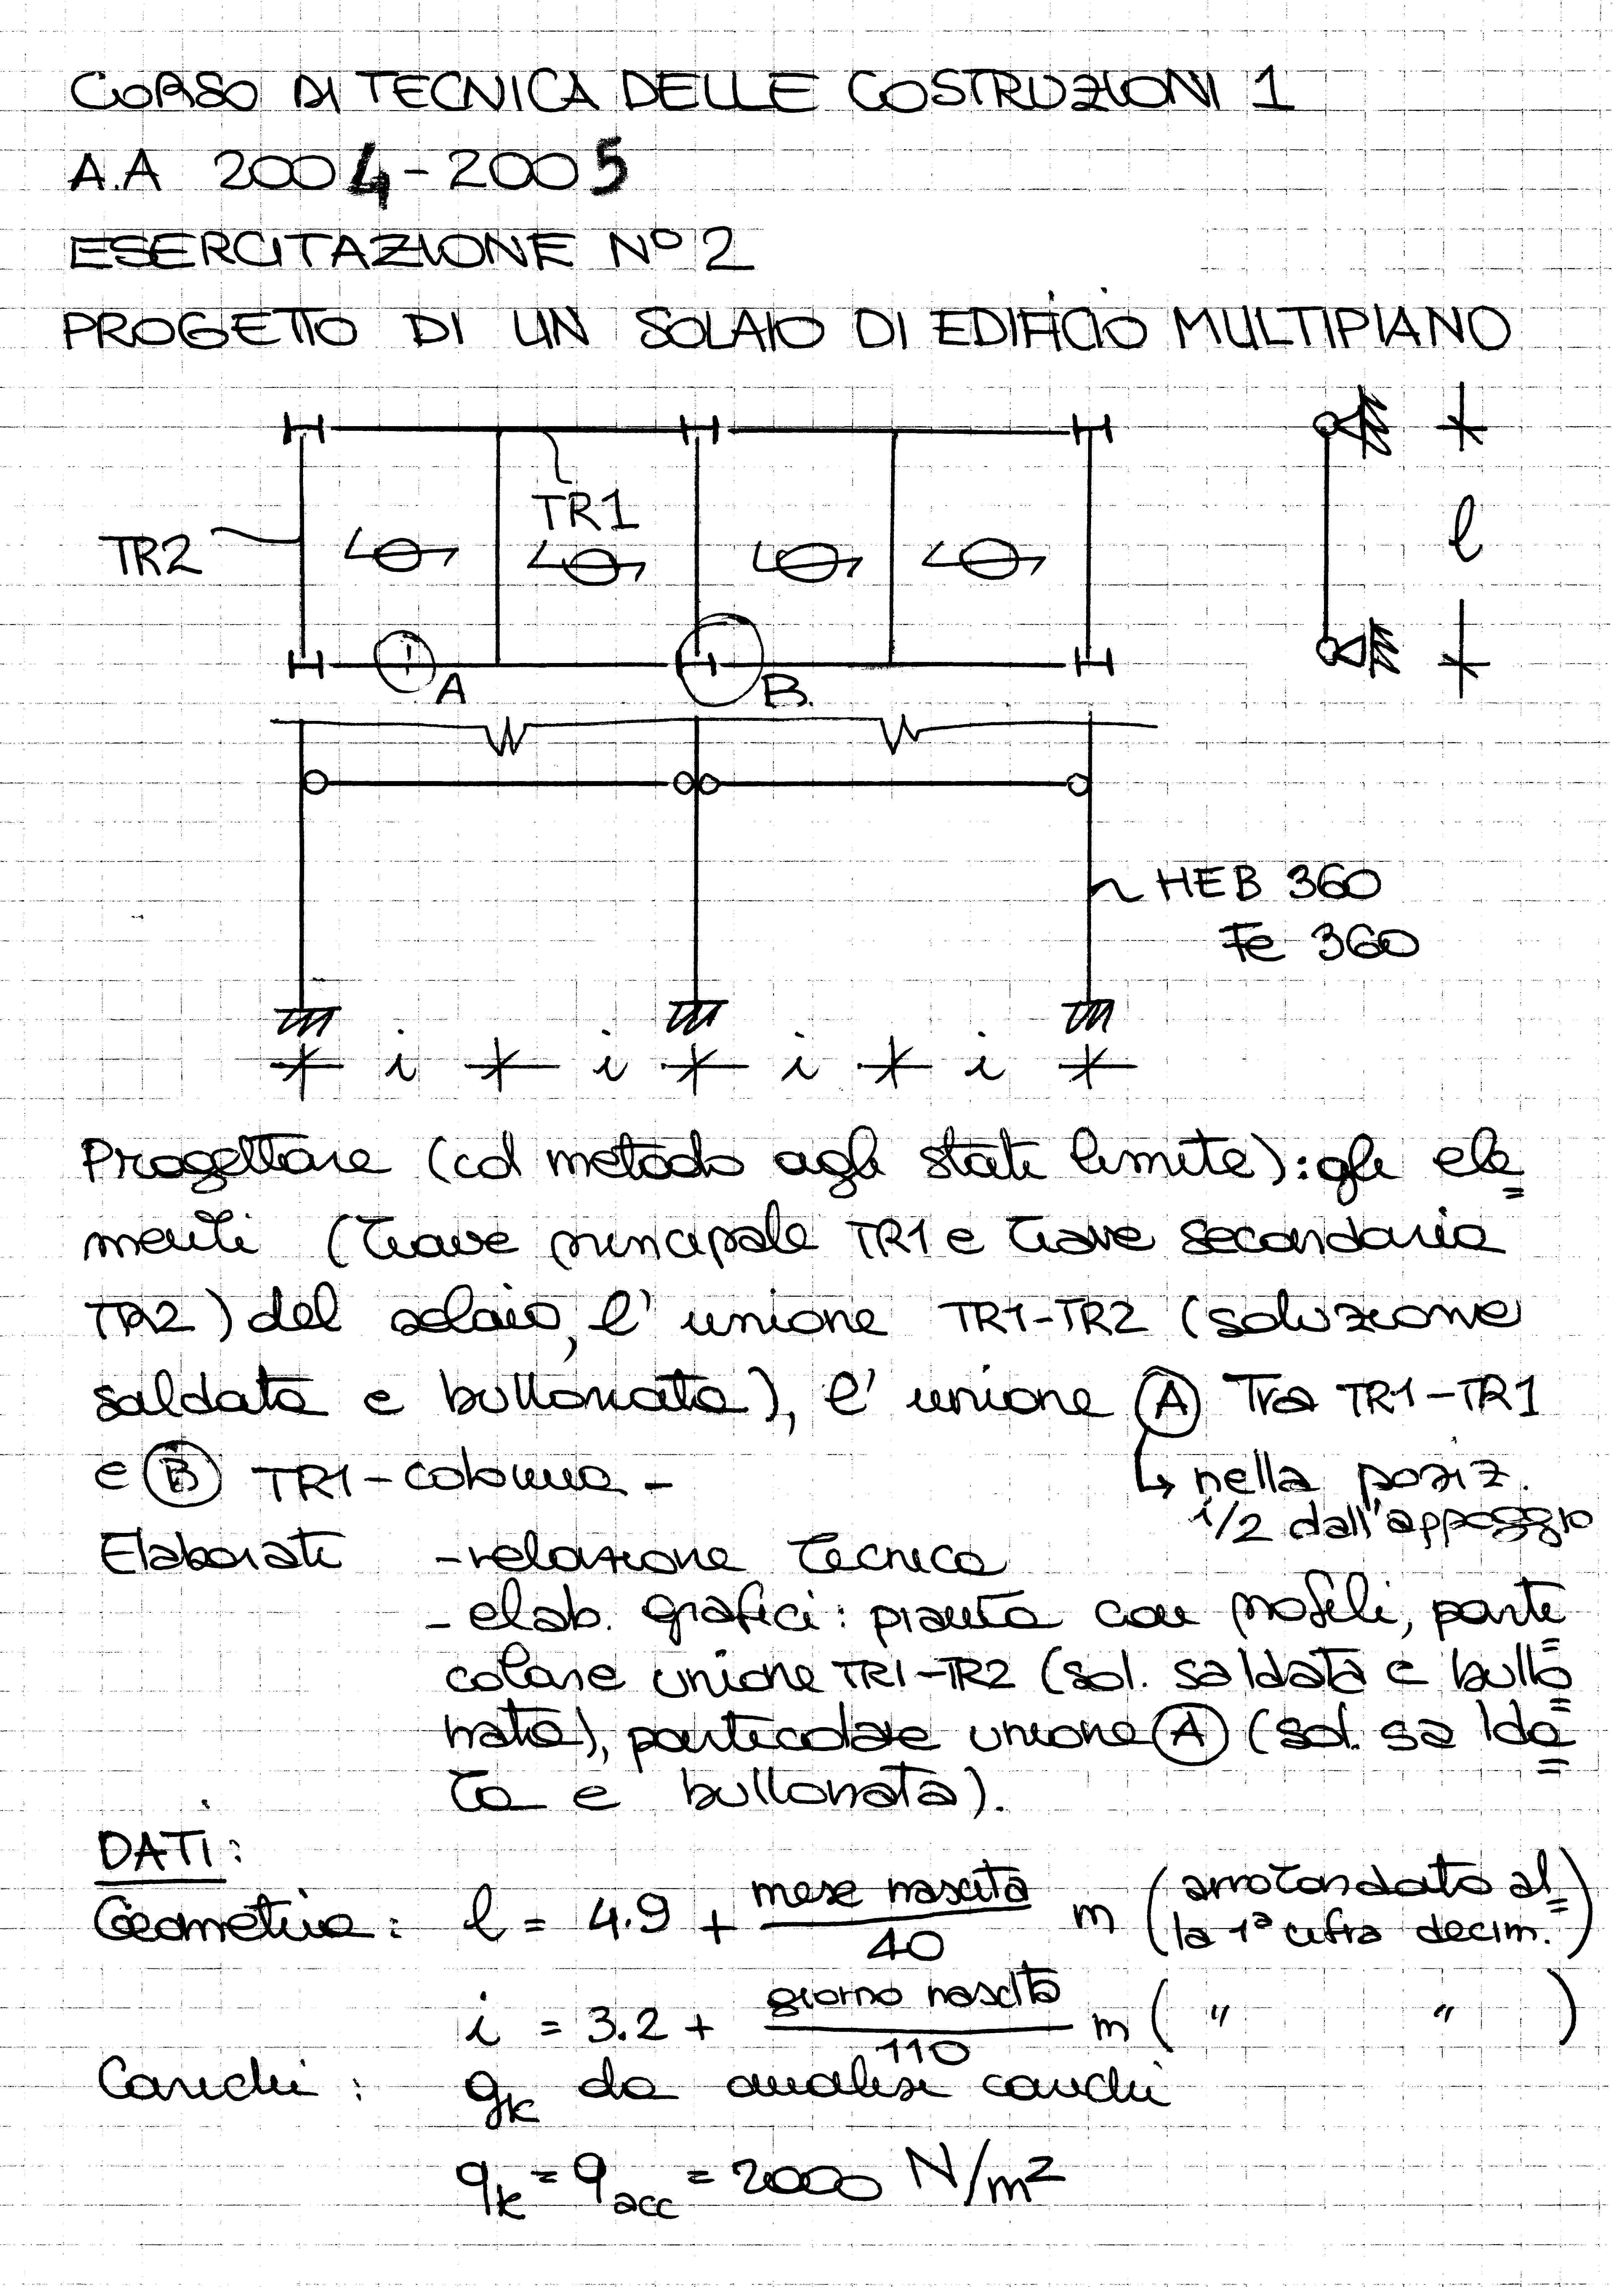 CORSO DI TECNICA DELLE COSTRUZIONI 1
A.A 2004-2005
ESERCITAZIONE N° 2
PROGETTO DI UN SOLAIO DI EDIFICIO MULTIPIANO
TR1
TR2
l
A
B.
HEB 360
Fe 360
i i i i
Progettare (col metodo agli stati limite): gli ele=
menti (trave principale TR1 e trave secondaria
TR2) del solaio, l'unione TR1-TR2 (soluzione
saldata e bullonata), l'unione A Tra TR1-TR1
e B TR1-colonna-
↳ nella posiz.
i/2 dall'appoggio
Elaborati -relazione Tecnica
- elab. grafici: pianta con profili, parti=
colare unione TR1-TR2 (sol. saldata e bullo=
nata), particolare unione A (sol. salda=
ta e bullonata).
DATI:
Geometria: l = 4.9 + mese nascita/40 m (arrotondato al=
la 1ª cifra decim.)
i = 3.2 + giorno nascita/110 m ( " " )
Carichi: gk da analisi carichi
qk = qacc = 2000 N/m²